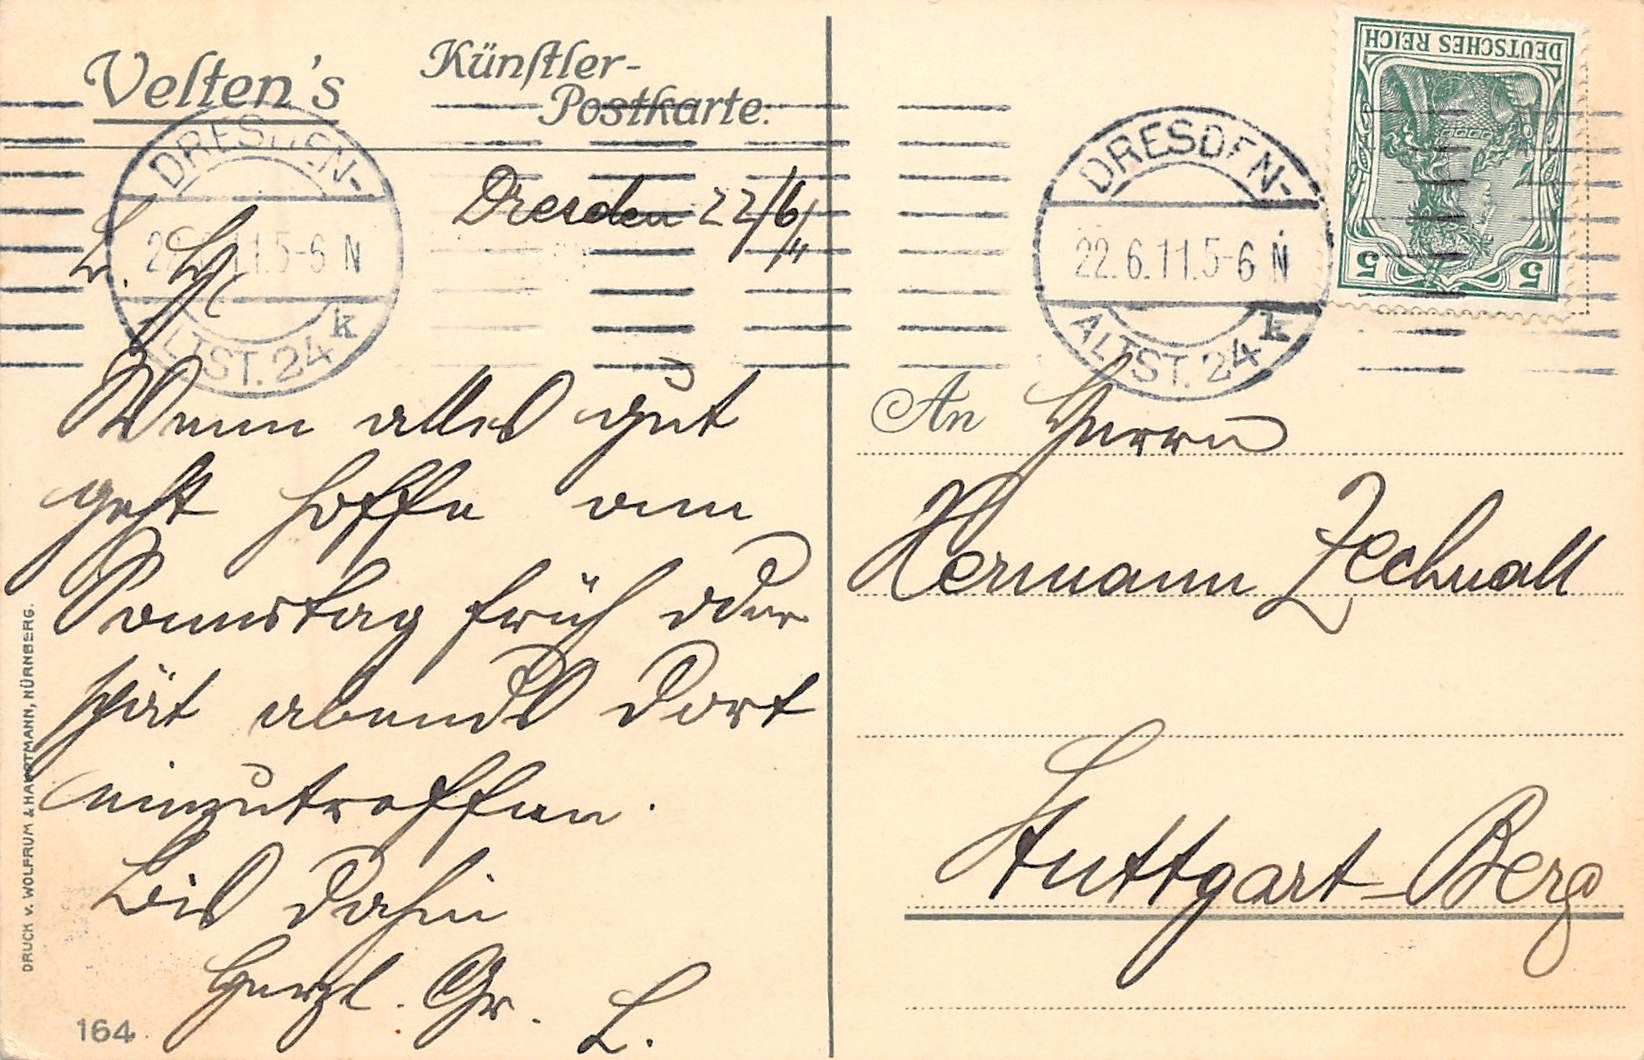 Velten's Künstler-
Postkarte.
DRESDEN-
22.6.11.5-6 N
ALTST. 24 k
Dresden 22/6/11
L. H.
Wenn alles gut
geht hoffe am
Sonnstag früh oder
spät abends dort
einzutreffen.
Bis dahin
Herzl. Gr. L.
164
DRUCK v. WOLFRUM & HAUPTMANN, NÜRNBERG.
DEUTSCHES REICH
5 5
DRESDEN-
22.6.11.5-6 N
ALTST. 24 k
An Herrn
Hermann Zechnall
Stuttgart-Berg